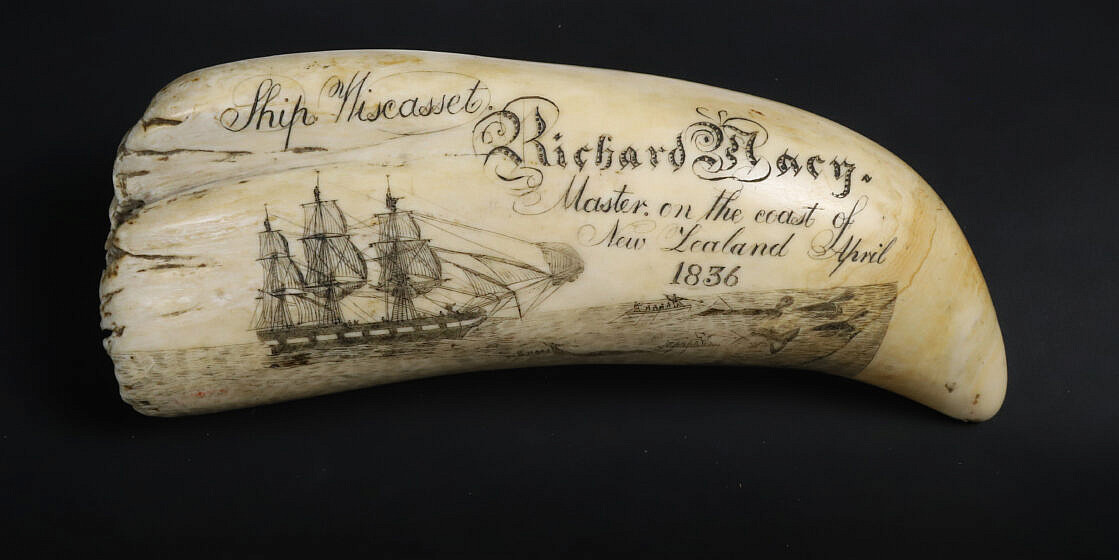 Ship Wiscasset.
Richard Macy.
Master. on the coast of
New Zealand April
1836